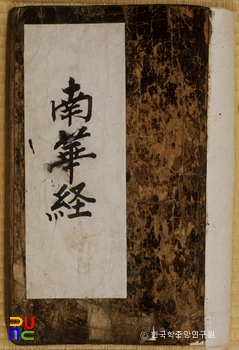 南華経
© 한국학중앙연구원